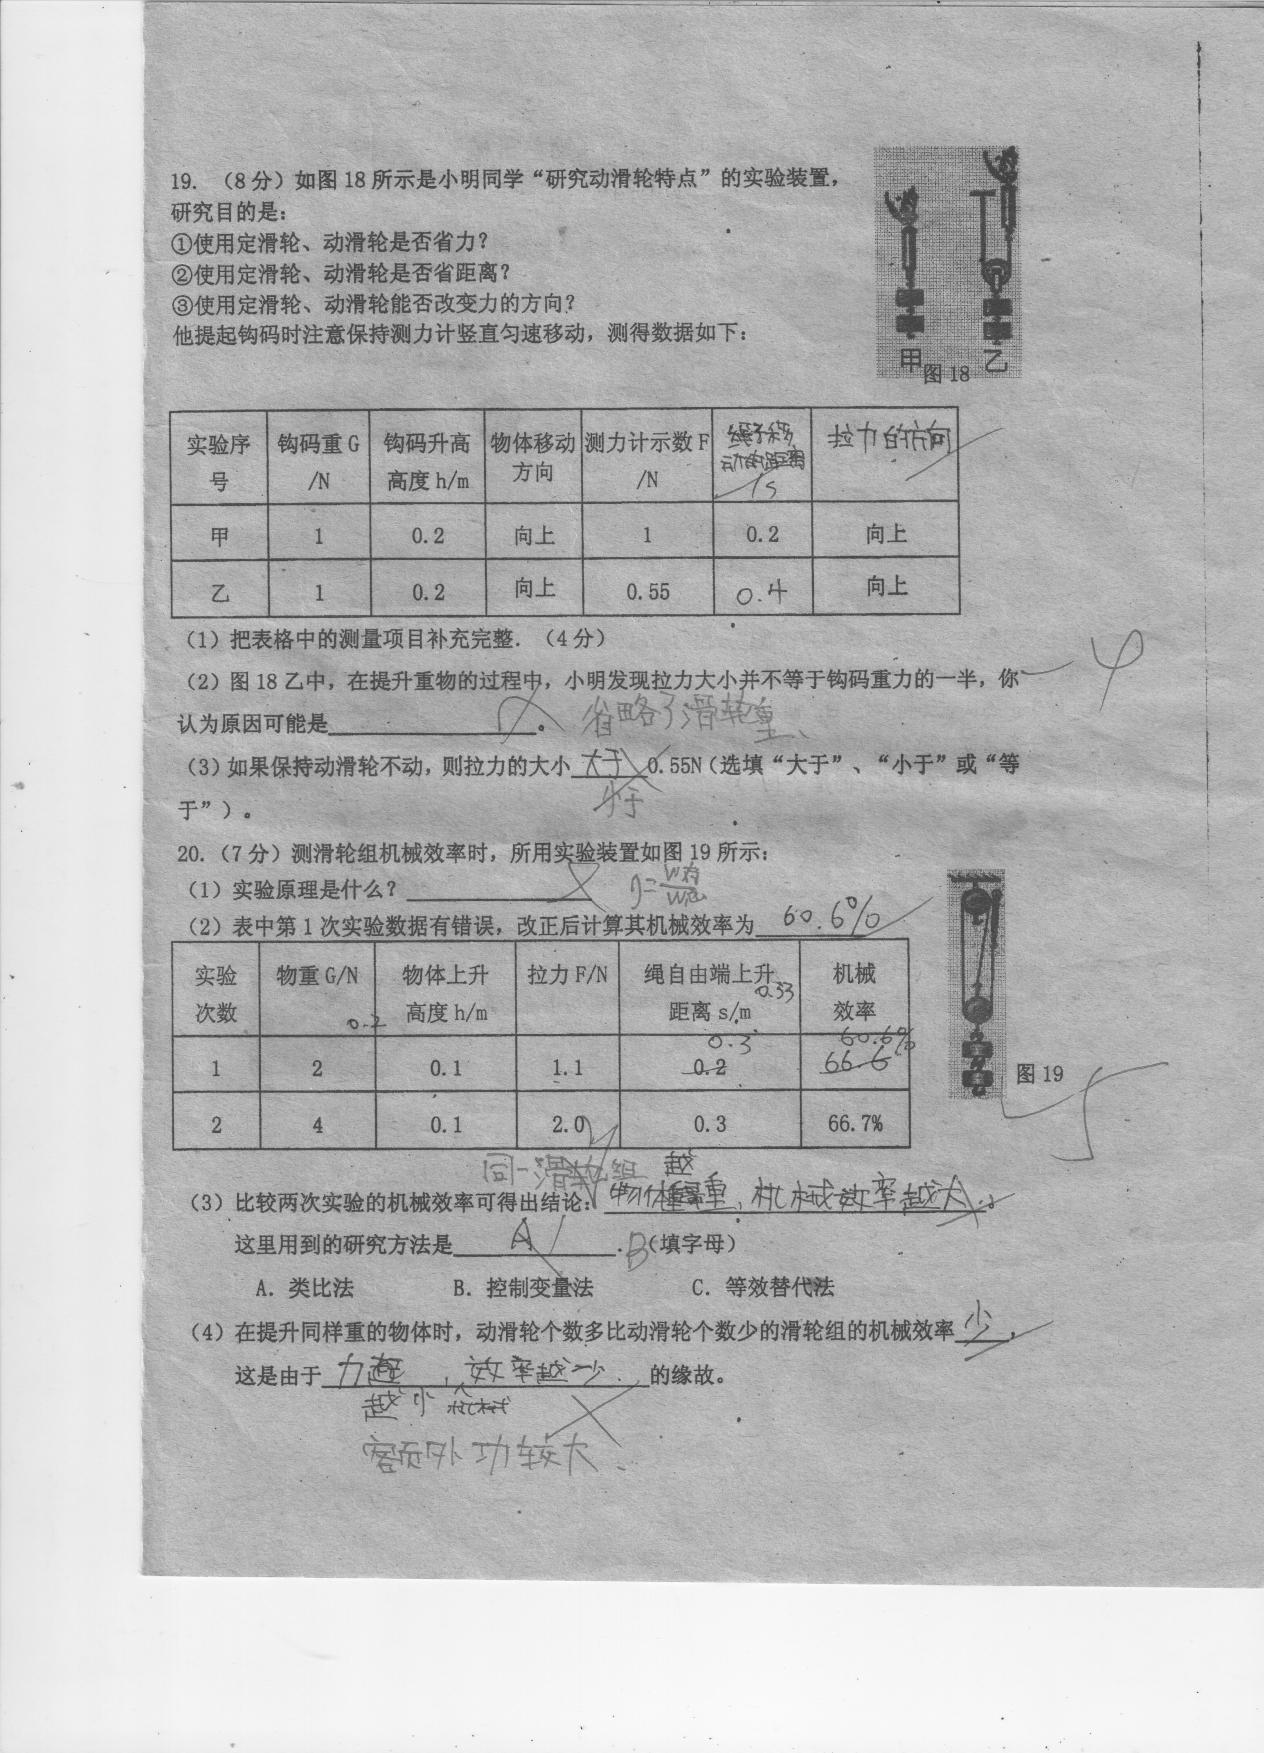 19. （8分）如图18所示是小明同学“研究动滑轮特点”的实验装置，
研究目的是：
①使用定滑轮、动滑轮是否省力？
②使用定滑轮、动滑轮是否省距离？
③使用定滑轮、动滑轮能否改变力的方向？
他提起钩码时注意保持测力计竖直匀速移动，测得数据如下：
甲 乙
图18
实验序号 钩码重G/N 钩码升高高度h/m 物体移动方向 测力计示数F/N 绳子移动的距离/s 拉力的方向
甲 1 0.2 向上 1 0.2 向上
乙 1 0.2 向上 0.55 0.4 向上
（1）把表格中的测量项目补充完整．（4分）
（2）图18乙中，在提升重物的过程中，小明发现拉力大小并不等于钩码重力的一半，你
认为原因可能是 。 省略了滑轮重、
（3）如果保持动滑轮不动，则拉力的大小 大于 0.55N（选填“大于”、“小于”或“等
小于
于”）。
20.（7分）测滑轮组机械效率时，所用实验装置如图19所示：
（1）实验原理是什么？ η=W有/W总
（2）表中第1次实验数据有错误，改正后计算其机械效率为 60.6%
实验次数 物重G/N 物体上升高度h/m 拉力F/N 绳自由端上升距离s/m 机械效率
0.2 0.33
0.3 60.6%
1 2 0.1 1.1 0.2 66.6
2 4 0.1 2.0 0.3 66.7%
图19
同一滑轮组 越
（3）比较两次实验的机械效率可得出结论： 物体重，机械效率越大。
这里用到的研究方法是 A ．B（填字母）
A．类比法 B．控制变量法 C．等效替代法
（4）在提升同样重的物体时，动滑轮个数多比动滑轮个数少的滑轮组的机械效率 少 ，
这是由于 力越 ，效率越少． 的缘故。
越小 机械
额外功较大．